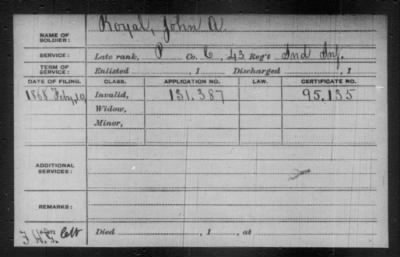 NAME OF SOLDIER: Royal, John A.
SERVICE: Late rank, P Co. C, 43 Reg't Ind Inf.
TERM OF SERVICE: Enlisted , 1 Discharged , 1
DATE OF FILING. CLASS. APPLICATION NO. LAW. CERTIFICATE NO.
1868 Feby, 10 Invalid, 131.387 95.135
Widow,
Minor,
ADDITIONAL SERVICES:
REMARKS:
Died , 1 , at